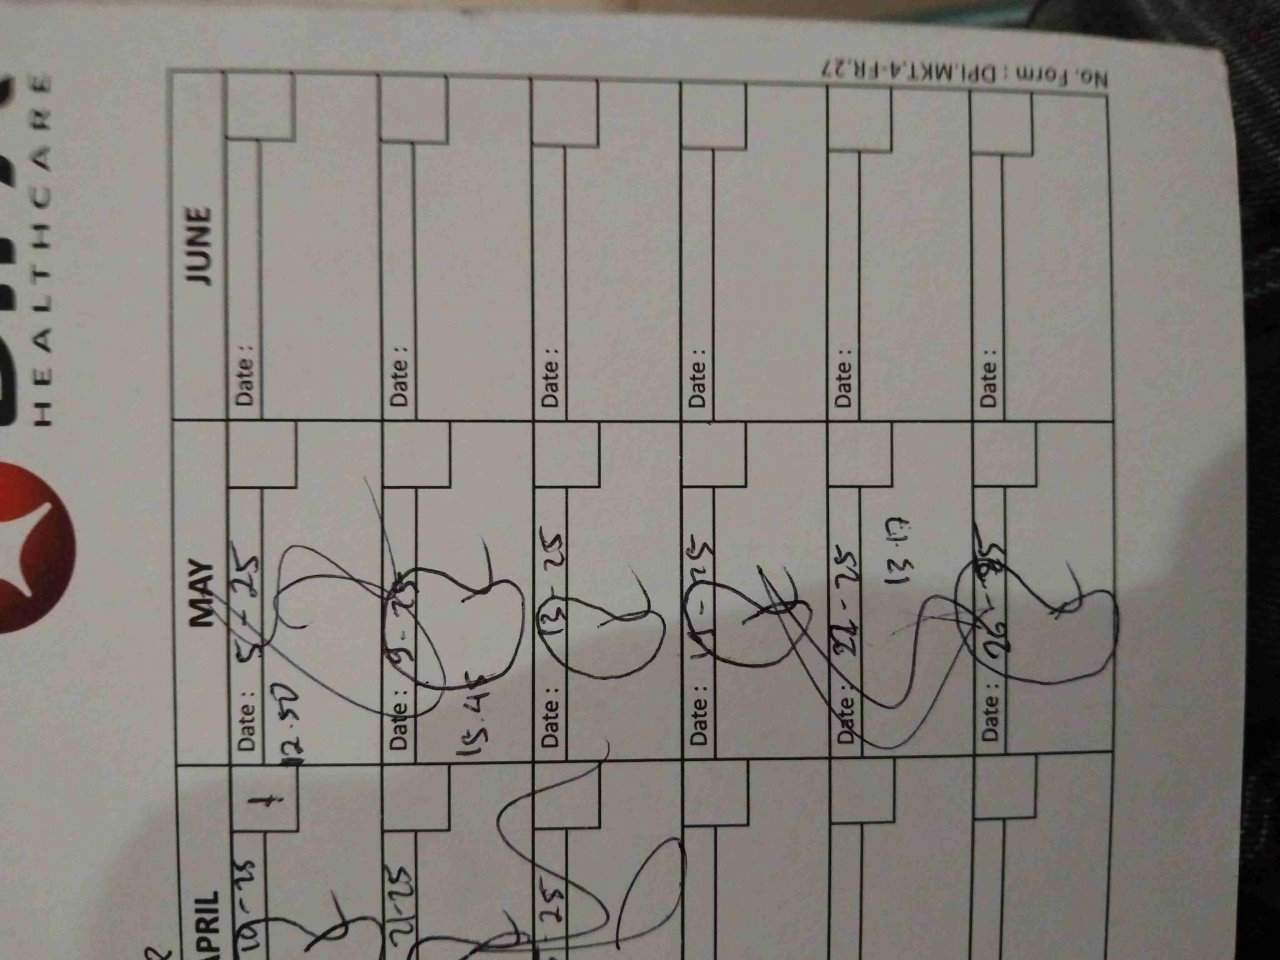 HEALTHCARE
No. Form : DPI.MKT.4-FR.27
APRIL
MAY
JUNE
19-25
1
Date : 5 - 25
12.50
Date :
21-25
Date : 9 - 25
15.45
Date :
25
Date : 13 - 25
Date :
Date : 15 - 25
Date :
Date : 22 - 25
13.17
Date :
Date : 26 - 25
Date :